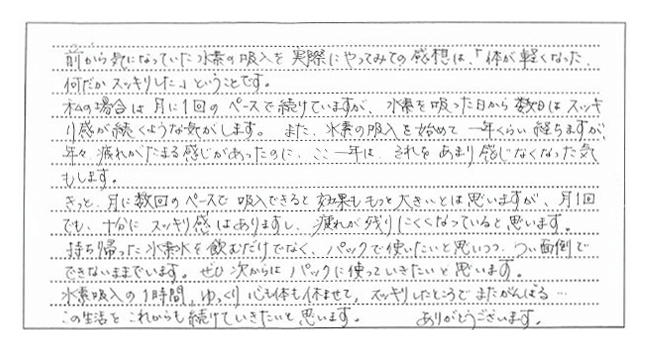 前から気になっていた水素の吸入を実際にやってみての感想は、「体が軽くなった、
何だかスッキリした」ということです。
私の場合は月に1回のペースで続けていますが、水素を吸った日から数日はスッキ
リ感が続くような気がします。また、水素の吸入を始めて一年くらい経ちますが、
年々疲れがたまる感じがあったのに、ここ一年は、それをあまり感じなくなった気
もします。
きっと、月に数回のペースで吸入できると効果ももっと大きいとは思いますが、月1回
でも、十分にスッキリ感はありますし、疲れが残りにくくなっていると思います。
持ち帰った水素水を飲むだけでなく、パックで使いたいと思いつつ、つい面倒で
できないままでいます。ぜひ次からはパックに使っていきたいと思います。
水素吸入の1時間、ゆっくり心も体も休ませて、スッキリしたところでまたがんばる…
この生活をこれからも続けていきたいと思います。 ありがとうございます。